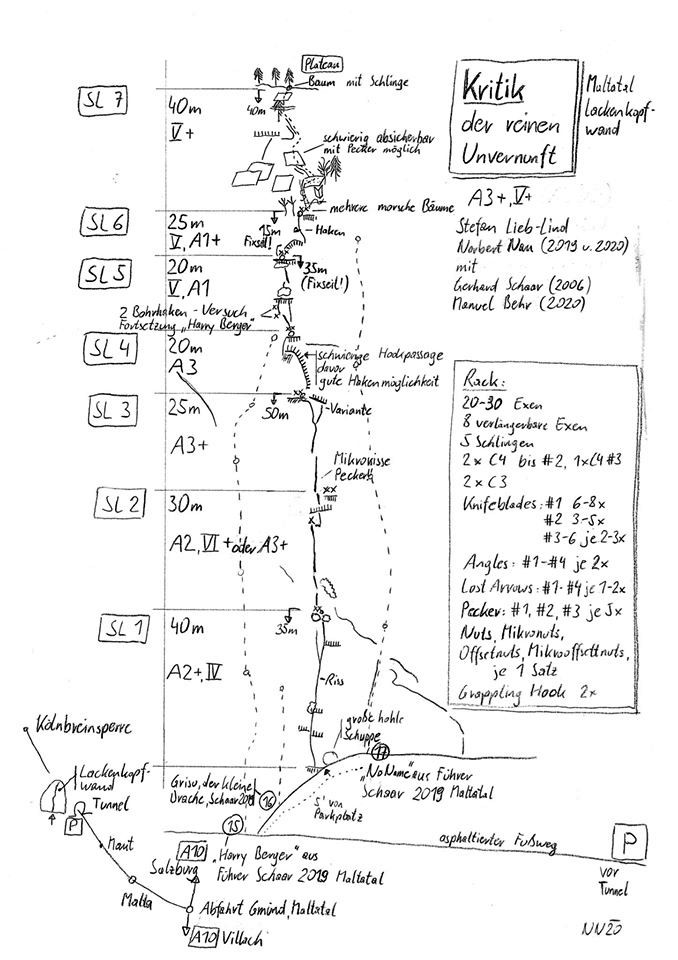 Plateau
Baum mit Schlinge
40m
SL 7
40m
V+
schwierig absicherbar
mit Pecker möglich
Kritik
der reinen
Unvernunft
Maltatal
Lackenkopf-
wand
A3+, V+
Stefan Lieb-Lind
Norbert Nau (2019 u. 2020)
mit
Gerhard Schaar (2006)
Manuel Behr (2020)
mehrere morsche Bäume
SL 6
25m
V, A1+
15m
Fixseil!
Haken
SL 5
20m
V, A1
35m
(Fixseil!)
2 Bohrhaken - Versuch
Fortsetzung "Harry Berger"
SL 4
20m
A3
schwierige Hookpassage
davor
gute Hakenmöglichkeit
SL 3
25m
A3+
50m
Variante
Mikrorisse
Peckern
SL 2
30m
A2, VI+ oder A3+
SL 1
40m
A2+, IV
35m
Riss
große hohle
Schuppe
Rack:
20-30 Exen
8 verlängerbare Exen
5 Schlingen
2x C4 bis #2, 1xC4 #3
2x C3
Knifeblades: #1 6-8x
#2 3-5x
#3-6 je 2-3x
Angles: #1-#4 je 2x
Lost Arrows: #1-#4 je 1-2x
Pecker: #1, #2, #3 je 5x
Nuts, Mikronuts,
Offsetnuts, Mikrooffsettnuts,
je 1 Satz
Grappling Hook 2x
17
"NoName" aus Führer
Schaar 2019 Maltatal
Grisu, der kleine
Drache, Schaar 2019
16
5' von
Parkplatz
15
"Harry Berger" aus
Führer Schaar 2019 Maltatal
asphaltierter Fußweg
P
vor
Tunnel
Kölnbreinsperre
Lackenkopf-
wand
Tunnel
P
Maut
Malta
A10
Salzburg
Abfahrt Gmünd, Maltatal
A10 Villach
NN20